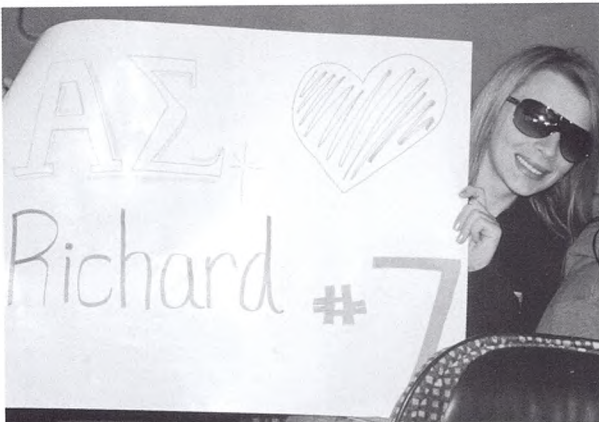 ΑΣ
Richard #7